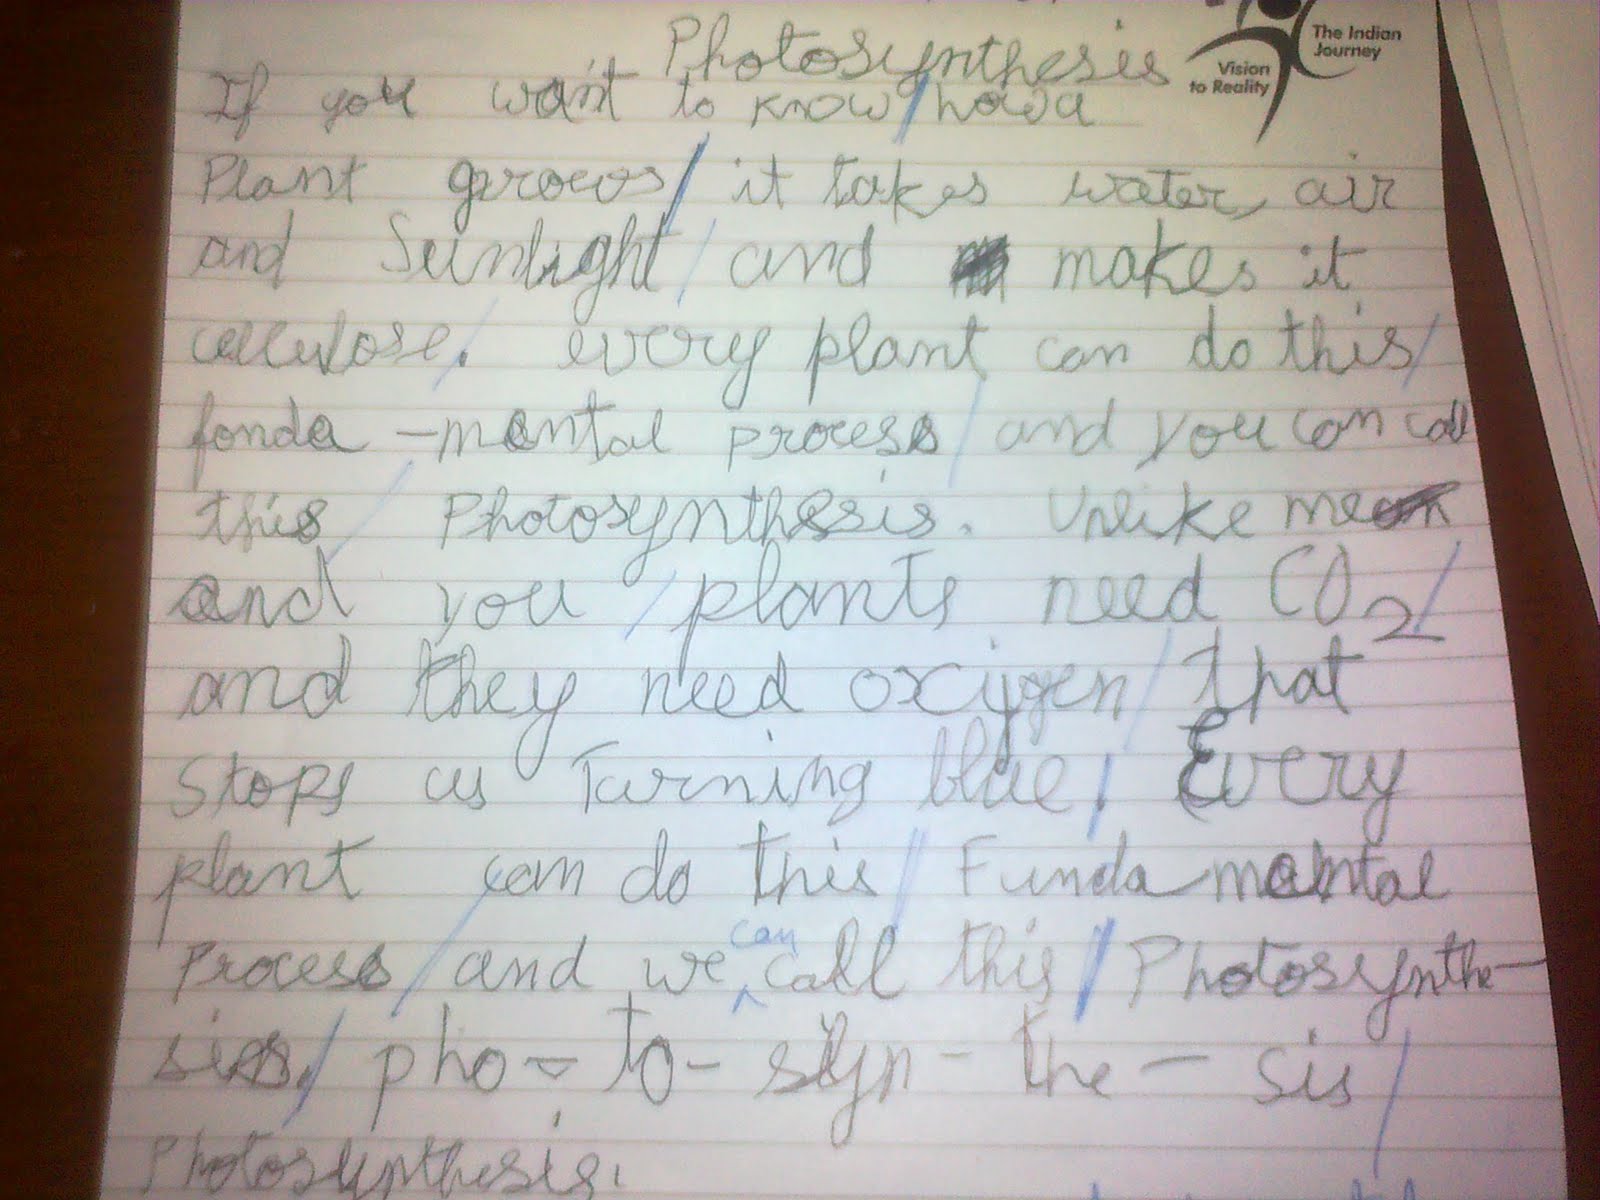 Photosynthesis
The Indian
Journey
Vision
to Reality
If you want to know / how a
Plant grows / it takes water, air
and Sunlight / and makes it
cellulose. / every plant can do this /
fonda - mental process / and you can call
this / Photosynthesis. Unlike me
and you / plants need CO2 /
and they need oxygen / that
stops us Turning blue, / Every
plant / can do this / Fundamental
Process / and we can call this / Photosynthe-
sis. / pho - to - syn - the - sis /
Photosynthesis.